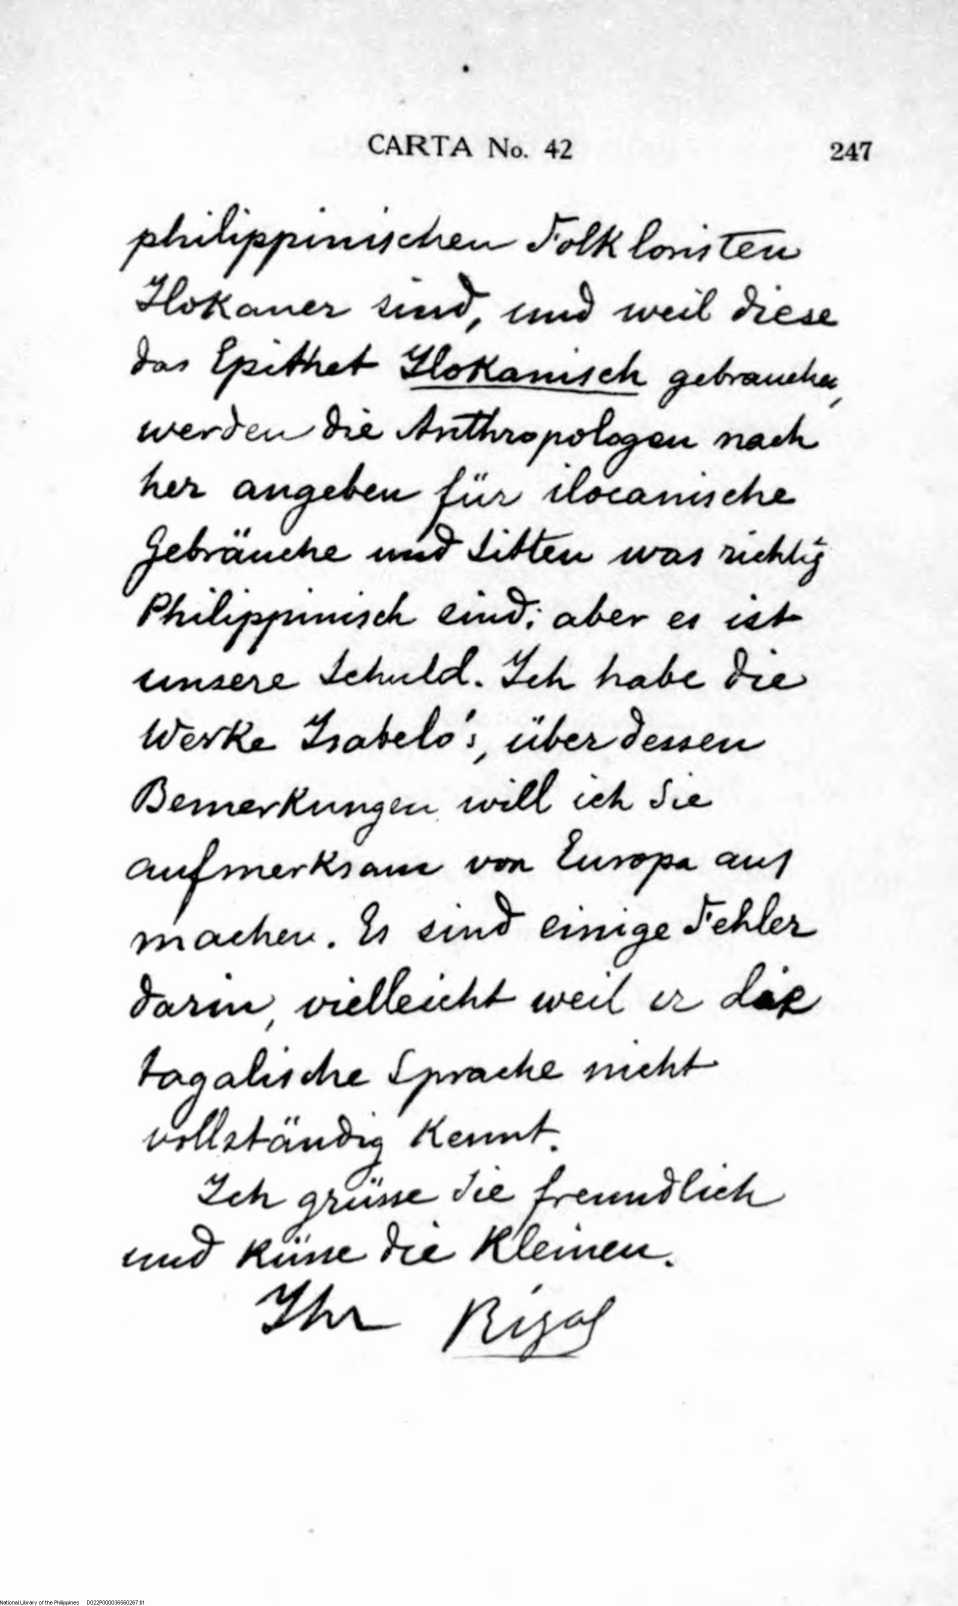 CARTA No. 42 247
philippinischen Folkloristen
Ilokaner sind, und weil diese
das Epithet Ilokanisch gebrauchen,
werden die Anthropologen nach
her angeben für ilocanische
Gebräuche und Sitten was richtig
Philippinisch sind; aber es ist
unsere Schuld. Ich habe die
Werke Isabelo's, über dessen
Bemerkungen will ich Sie
aufmerksam von Europa aus
machen. Es sind einige Fehler
darin, vielleicht weil er die
tagalische Sprache nicht
vollständig kennt.
Ich grüsse Sie freundlich
und küsse die Kleinen.
Ihr Rizal
National Library of the Philippines